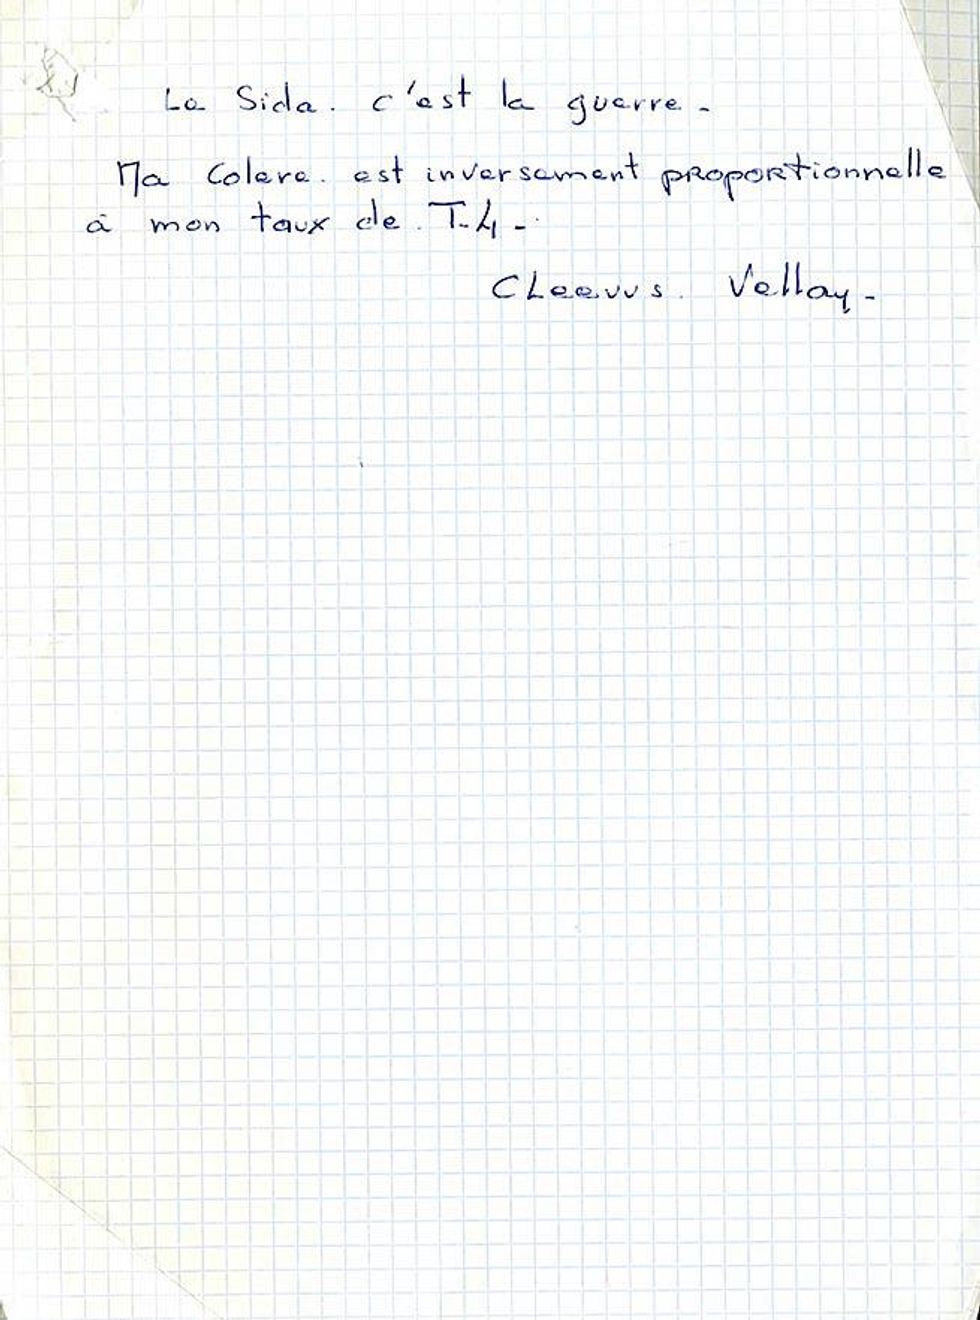 Le Sida. c'est la guerre -
Ma Colere. est inversement proportionnelle
à mon taux de. T.4 -
CLeews. Vellay -